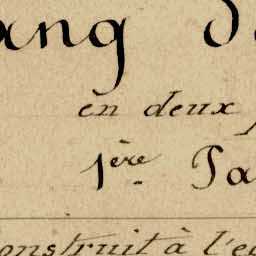 ang d
en deux
1ère Pa
onstruit à l'e